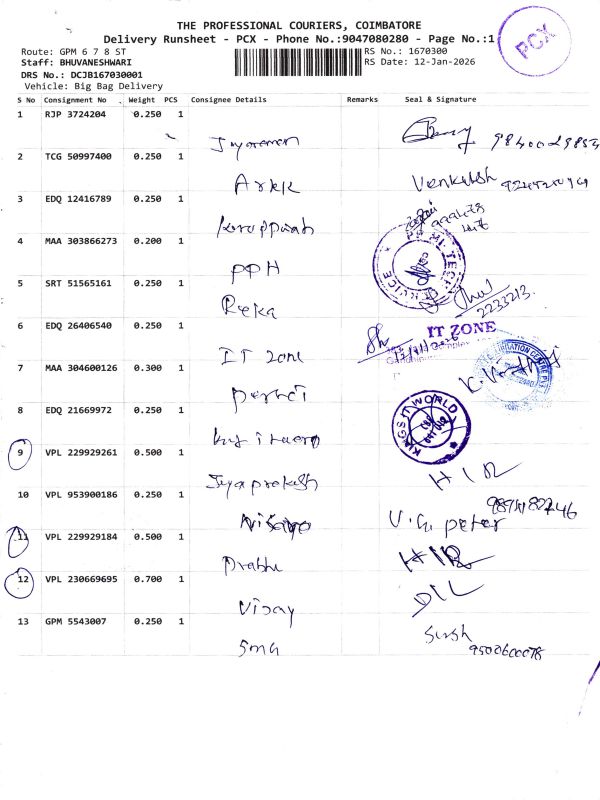 THE PROFESSIONAL COURIERS, COIMBATORE
Delivery Runsheet - PCX - Phone No.:9047080280 - Page No.:1
PCX
Route: GPM 6 7 8 ST
RS No.: 1670300
Staff: BHUVANESHWARI
RS Date: 12-Jan-2026
DRS No.: DCJB167030001
Vehicle: Big Bag Delivery
S No Consignment No Weight PCS Consignee Details Remarks Seal & Signature
1 RJP 3724204 0.250 1
Jayaraman
2 TCG 50997400 0.250 1
Venkatesh
3 EDQ 12416789 0.250 1
Karuppiah
4 MAA 303866273 0.200 1
PPH
5 SRT 51565161 0.250 1
Reka
2233213
6 EDQ 26406540 0.250 1
IT zone
IT ZONE
7 MAA 304600126 0.300 1
8 EDQ 21669972 0.250 1
KINGS IT WORLD
9 VPL 229929261 0.500 1
Jayaprakash
10 VPL 953900186 0.250 1
V.G. peter
11 VPL 229929184 0.500 1
Prabhu
12 VPL 230669695 0.700 1
Vijay
13 GPM 5543007 0.250 1
9500600078